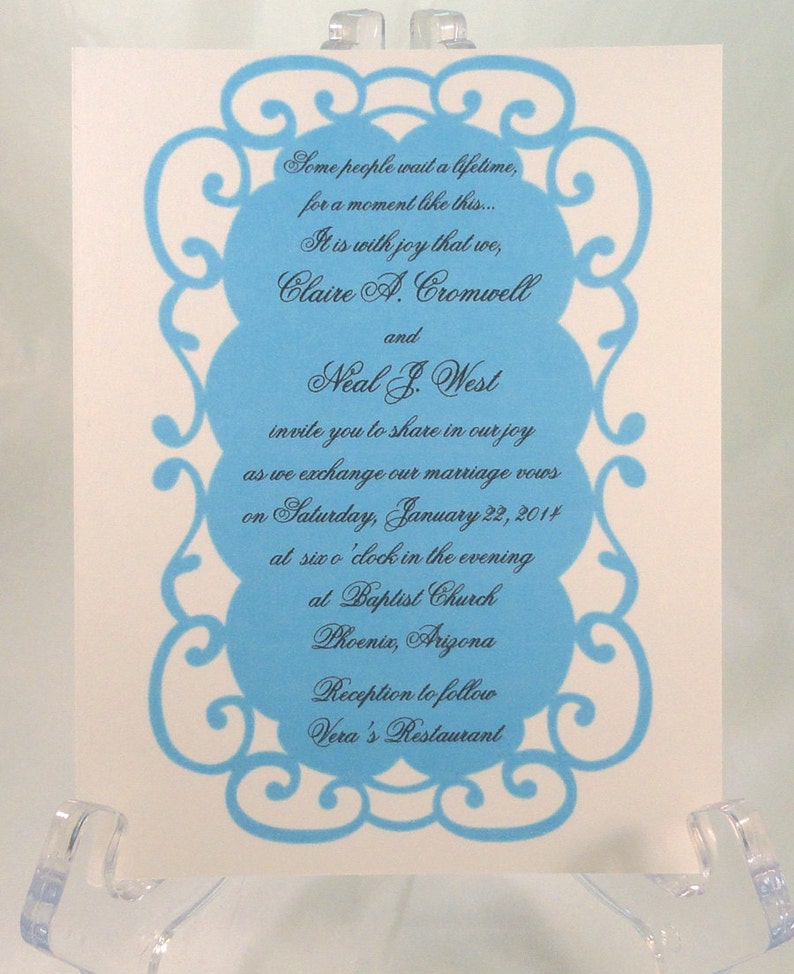 Some people wait a lifetime,
for a moment like this...
It is with joy that we,
Claire A. Cromwell
and
Neal J. West
invite you to share in our joy
as we exchange our marriage vows
on Saturday, January 22, 2014
at six o 'clock in the evening
at Baptist Church
Phoenix, Arizona
Reception to follow
Vera 's Restaurant